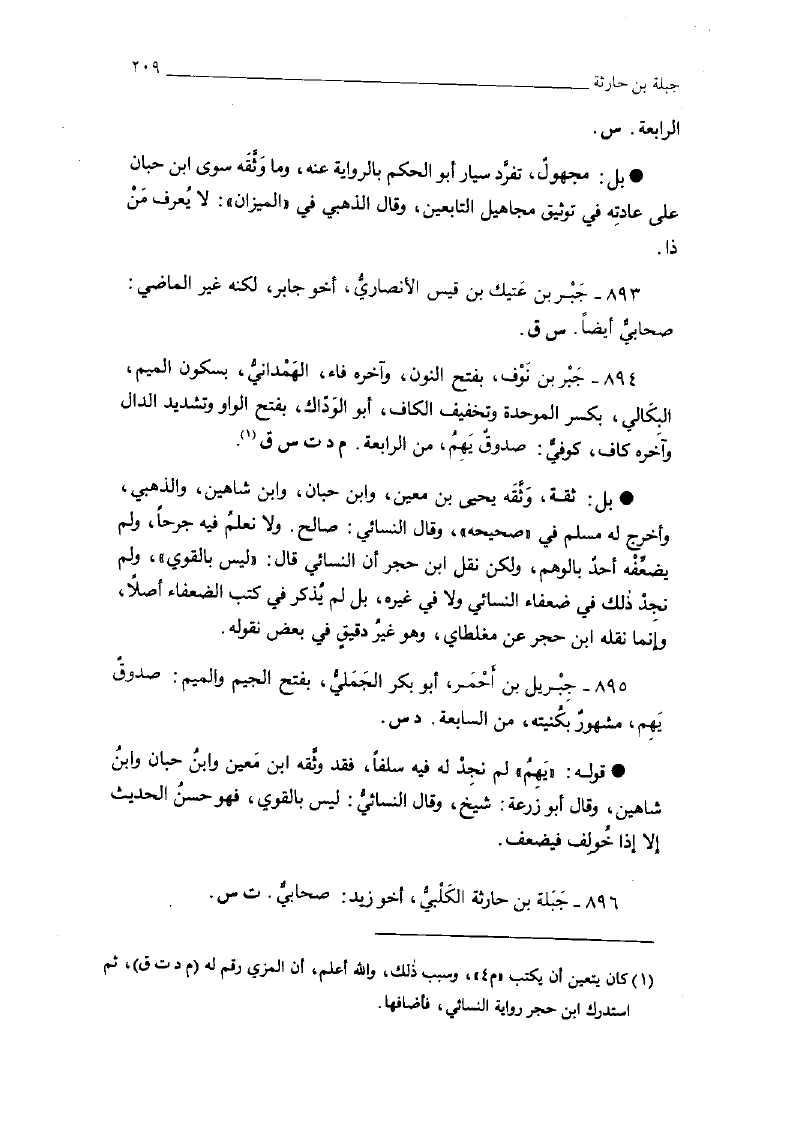 جبلة بن حارثة ٢٠٩
الرابعة. س.
● بل: مجهولٌ، تفرَّد سيار أبو الحكم بالرواية عنه، وما وَثَّقه سوى ابن حبان
على عادتِه في توثيق مجاهيل التابعين، وقال الذهبي في «الميزان»: لا يُعرف مَنْ
ذا.
٨٩٣ ـ جَبْر بن عَتيك بن قيس الأنصاريُّ، أخو جابر، لكنه غير الماضي:
صحابيٌّ أيضاً. س ق.
٨٩٤ ـ جَبْر بن نَوْف، بفتح النون، وآخره فاء، الهَمْدانيُّ، بسكون الميم،
البِكَالي، بكسر الموحدة وتخفيف الكاف، أبو الوَدّاك، بفتح الواو وتشديد الدال
وآخره كاف، كوفيٌّ: صدوقٌ يَهِمُ، من الرابعة. م د ت س ق(١).
● بل: ثقة، وَثَّقه يحيى بن معين، وابن حبان، وابن شاهين، والذهبي،
وأخرج له مسلم في «صحيحه»، وقال النسائي: صالح. ولا نعلمُ فيه جرحاً، ولم
يضعِّفْه أحدٌ بالوهم، ولكن نقل ابن حجر أن النسائي قال: «ليس بالقوي»، ولم
نجدْ ذلك في ضعفاء النسائي ولا في غيره، بل لم يُذكر في كتب الضعفاء أصلًا،
وإنما نقله ابن حجر عن مغلطاي، وهو غيرُ دقيقٍ في بعض نقوله.
٨٩٥ ـ جِبْريل بن أَحْمَر، أبو بكر الجَمَليُّ، بفتح الجيم والميم: صدوقٌ
يَهِم، مشهورٌ بكُنيته، من السابعة. د س.
● قوله: «يَهِمُ» لم نجدْ له فيه سلفاً، فقد وثَّقه ابن مَعين وابنُ حبان وابنُ
شاهين، وقال أبو زرعة: شيخ، وقال النسائيُّ: ليس بالقوي، فهو حسنُ الحديث
إلا إذا خُولِف فيضعف.
٨٩٦ ـ جَبَلة بن حارثة الكَلْبيُّ، أخو زيد: صحابيٌّ. ت س.
(١) كان يتعين أن يكتب «م٤»، وسبب ذلك، والله أعلم، أن المزي رقم له (م د ت ق)، ثم
استدرك ابن حجر رواية النسائي، فأضافها.